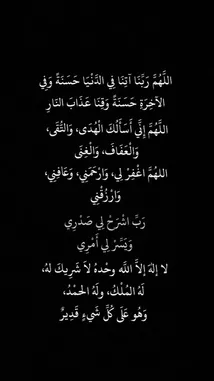 اللَّهُمَّ رَبَّنَا آتِنَا فِي الدُّنْيَا حَسَنَةً وَفِي
الآخِرَةِ حَسَنَةً وَقِنَا عَذَابَ النَّارِ
اللَّهُمَّ إِنِّي أَسْأَلُكَ الْهُدَى، وَالتُّقَى،
وَالْعَفَافَ، وَالْغِنَى
اللهُمَّ اغْفِرْ لِي، وَارْحَمْنِي، وَعَافِنِي،
وَارْزُقْنِي
رَبِّ اشْرَحْ لِي صَدْرِي
وَيَسِّرْ لِي أَمْرِي
لا إلهَ إلاَّ اللَّه وحْدهُ لاَ شَرِيكَ لهُ،
لَهُ المُلْكُ، ولَهُ الحمْدُ،
وَهُو عَلَى كُلِّ شَيءٍ قَدِيرٌ